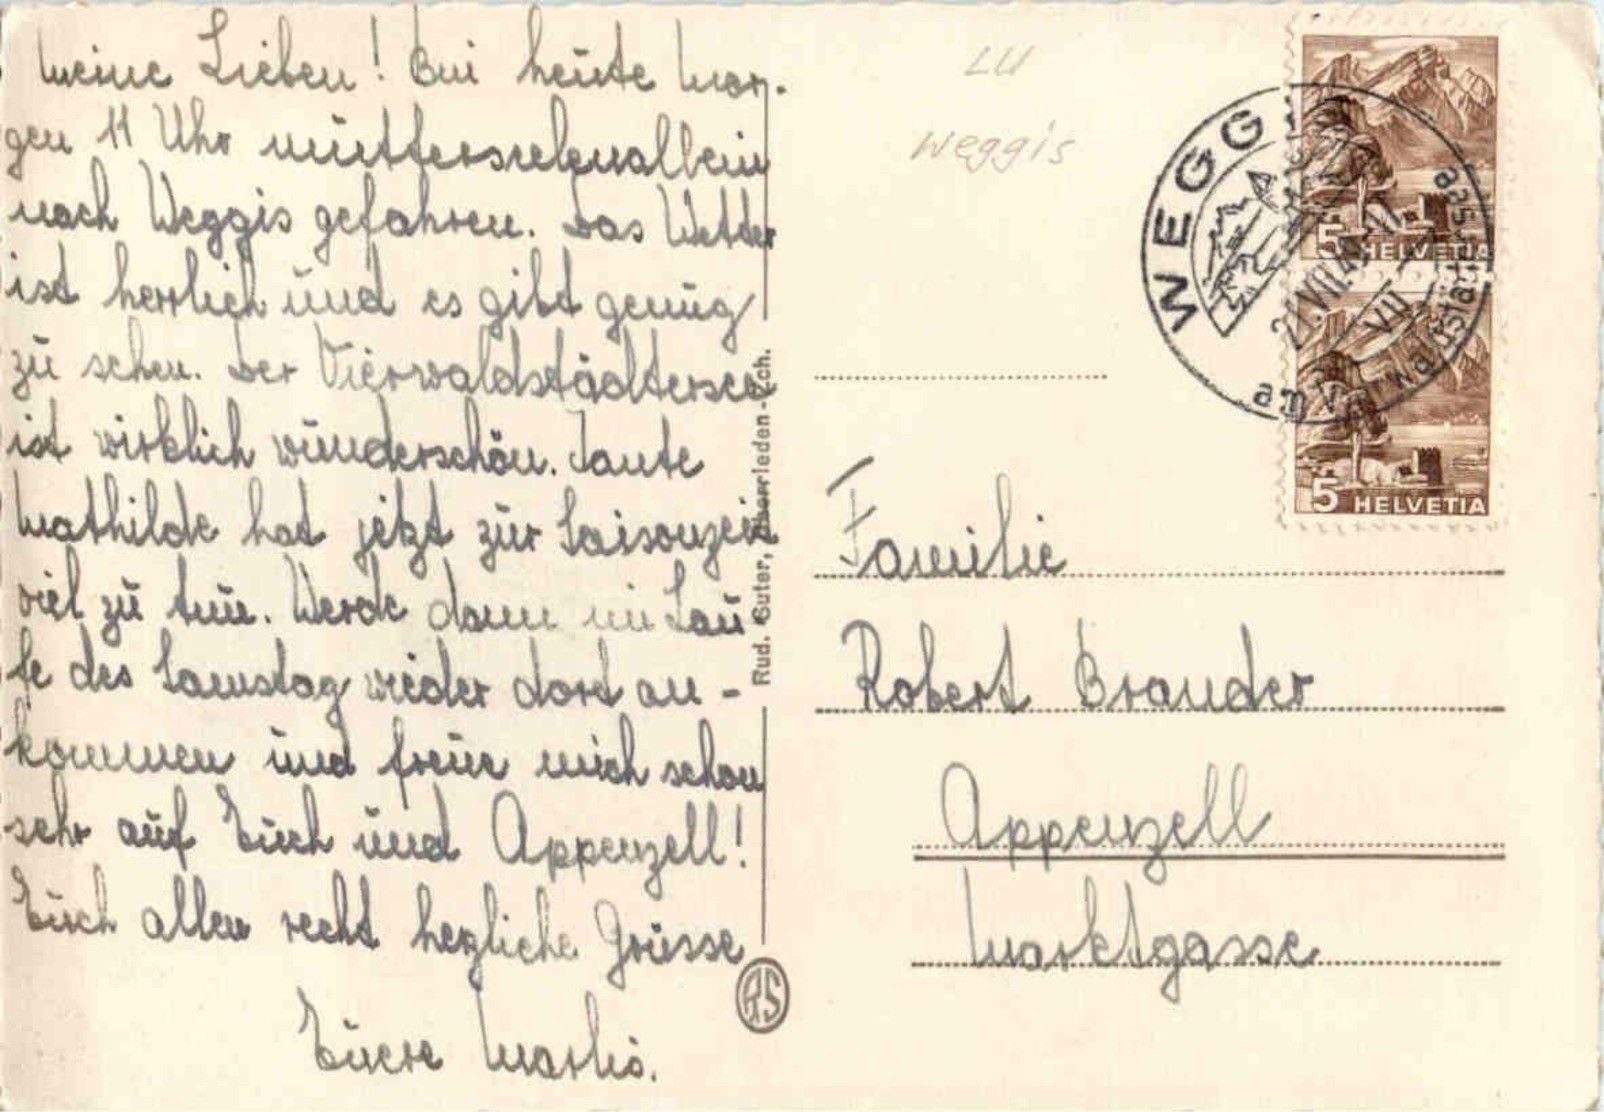 Meine Lieben! Bin heute Mor-
gen 11 Uhr mütterseelenallein
nach Weggis gefahren. Das Wetter
ist herrlich und es gibt genug
zu sehen. Der Vierwaldstädtersee
ist wirklich wunderschön. Tante
Mathilde hat jetzt zur Saisonzeit
viel zu tun. Werde dann im Lau-
fe des Samstag wieder dort an-
kommen und freue mich schon
sehr auf Euch und Appenzell!
Euch allen recht herzliche Grüsse
Euere Marlis.
Rud. Suter, Oberrieden-Zch.
RS
LU
Weggis
WEGGIS
am Vierwaldstättersee
21.VII.4
VII
5 HELVETIA
5 HELVETIA
Familie
Robert Brander
Appenzell
Marktgasse